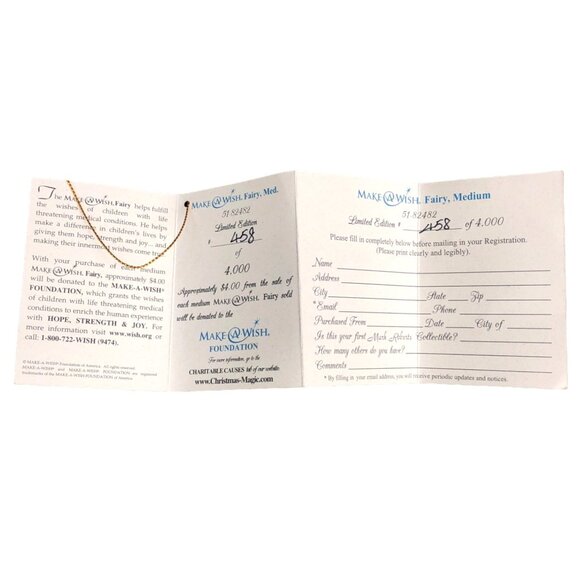 The MAKE-A-WISH® Fairy helps fulfill
the wishes of children with life
threatening medical conditions. He helps
make a difference in children's lives by
giving them hope, strength and joy... and
making their innermost wishes come true.
With your purchase of each medium
MAKE-A-WISH® Fairy, approximately $4.00
will be donated to the MAKE-A-WISH®
FOUNDATION, which grants the wishes
of children with life threatening medical
conditions to enrich the human experience
with HOPE, STRENGTH & JOY. For
more information visit www.wish.org or
call: 1-800-722-WISH (9474).
© MAKE-A-WISH® Foundation of America. All rights reserved.
MAKE-A-WISH® and MAKE-A-WISH® FOUNDATION are registered
trademarks of the MAKE-A-WISH® FOUNDATION of America.
MAKE-A-WISH® Fairy, Med.
51 82482
Limited Edition
# 458
of
4,000
Approximately $4.00 from the sale of
each medium MAKE-A-WISH® Fairy sold
will be donated to the
MAKE-A-WISH®
FOUNDATION
For more information, go to the
CHARITABLE CAUSES link of our website:
www.Christmas-Magic.com
MAKE-A-WISH® Fairy, Medium
51-82482
Limited Edition # 458 of 4,000
Please fill in completely below before mailing in your Registration.
(Please print clearly and legibly).
Name
Address
City State Zip
*Email Phone
Purchased From Date City of
Is this your first Mark Roberts Collectible?
How many others do you have?
Comments
* By filling in your email address, you will receive periodic updates and notices.